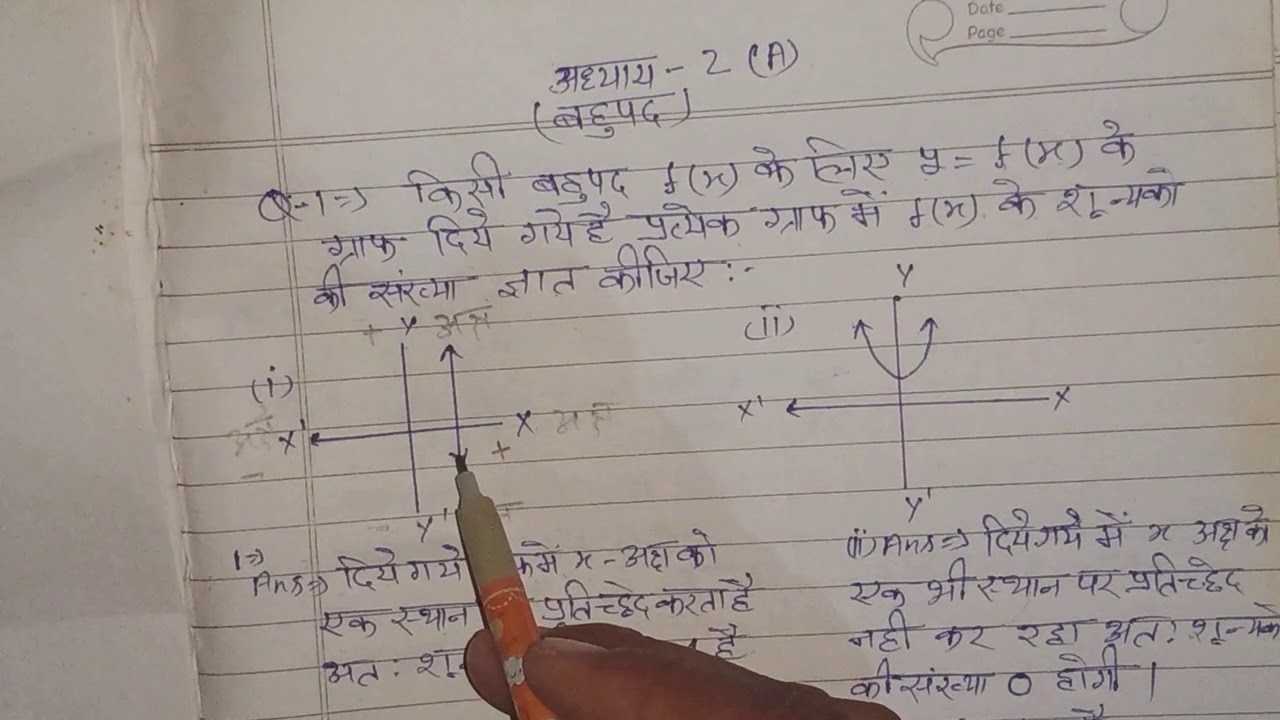 Date
Page
अध्याय - 2 (A)
(बहुपद)
Q-1⇒ किसी बहुपद f(x) के लिए y = f(x) के
ग्राफ दिये गये है प्रत्येक ग्राफ में f(x) के शून्यको
की संख्या ज्ञात कीजिए :-
+ Y अक्ष
(i)
X' X अक्ष
- +
Y'
(ii)
Y
X' X
Y'
1⇒
Ans⇒ दिये गये में x - अक्ष को
एक स्थान प्रतिच्छेद करता है
अत: है
(ii) Ans⇒ दिये गये में x अक्ष के
एक भी स्थान पर प्रतिच्छेद
नही कर रहा अत: शून्यको
की संख्या 0 होगी ।